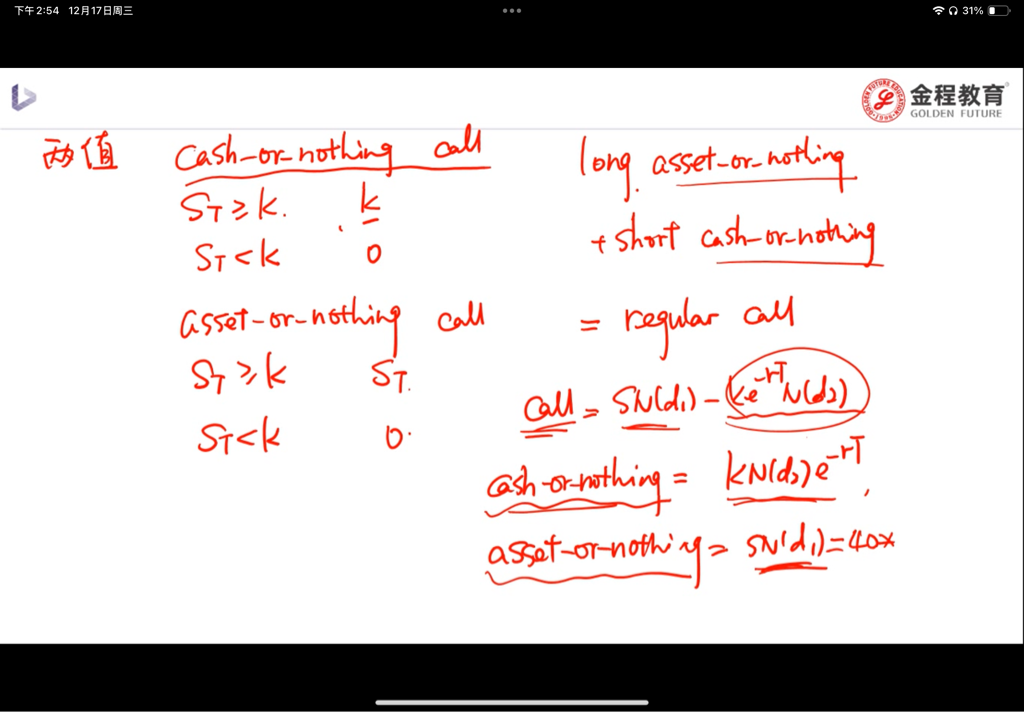 下午2:54 12月17日周三
31%
金程教育
GOLDEN FUTURE
两值 cash-or-nothing call
ST≥k. k
ST<k 0
asset-or-nothing call
ST≥k ST.
ST<k 0.
long asset-or-nothing
+ short cash-or-nothing
= regular call
call = SN(d1) - ke^-rT N(d2)
cash-or-nothing = kN(d2)e^-rT,
asset-or-nothing = SN(d1) = 40×